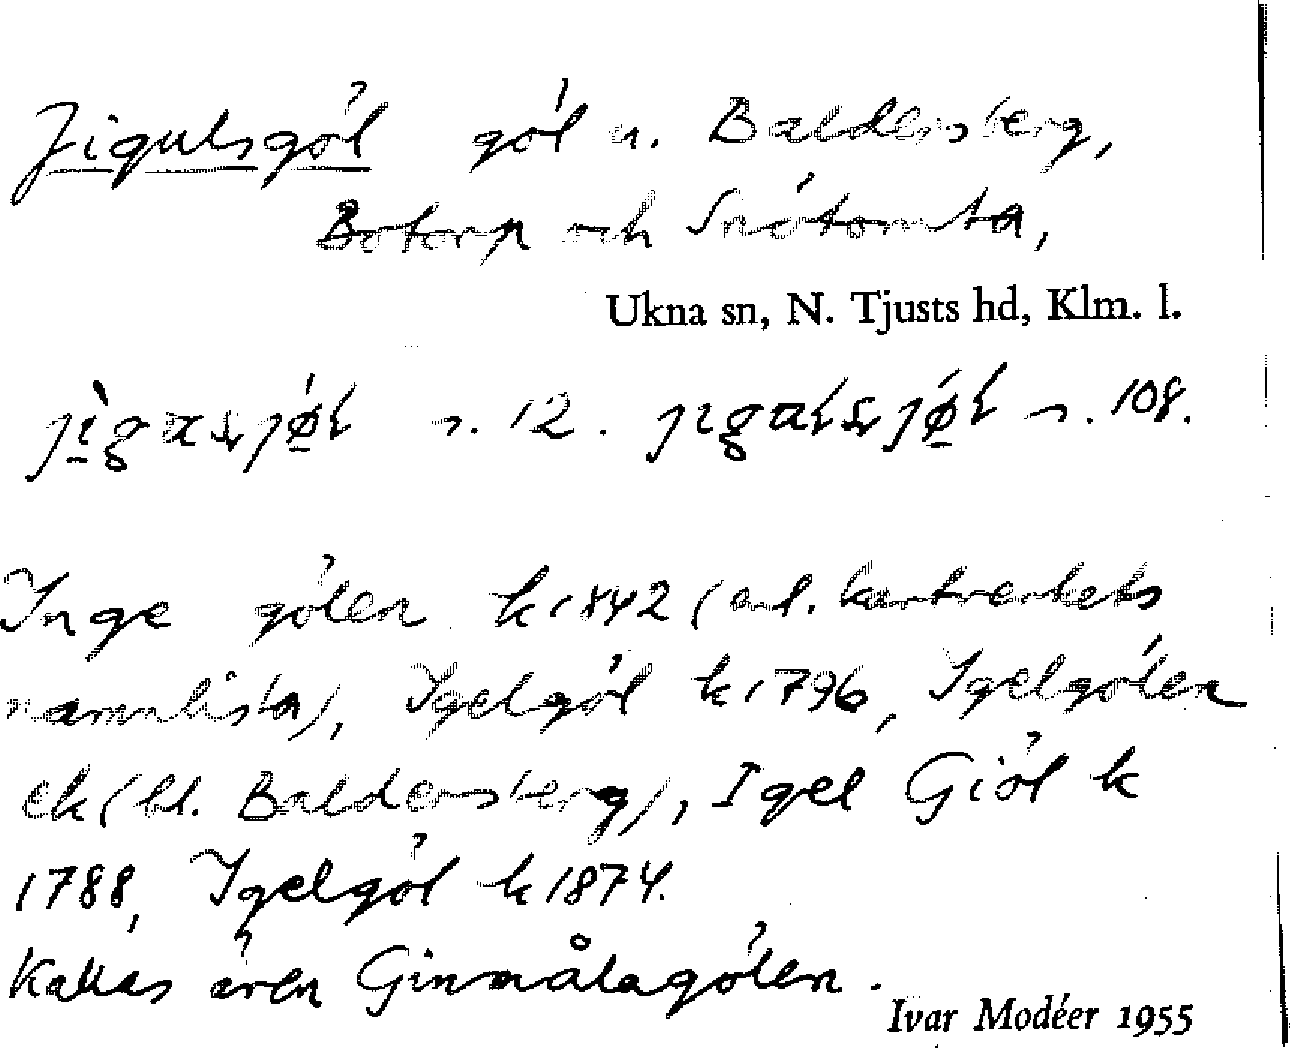 Jigulsgöl göl u. Baldersberg,
Botorp och Snötomta,
Ukna sn, N. Tjusts hd, Klm. l.
s. 12. s. 108.
Inge gölen k 1842 (enl. kartverkets
namnlista), Igelgöl k 1796, Igelgölen
ek (bl. Baldersberg), Igel Giöl k
1788, Igelgöl k 1874.
Kallas även Ginmålagölen.
Ivar Modéer 1955